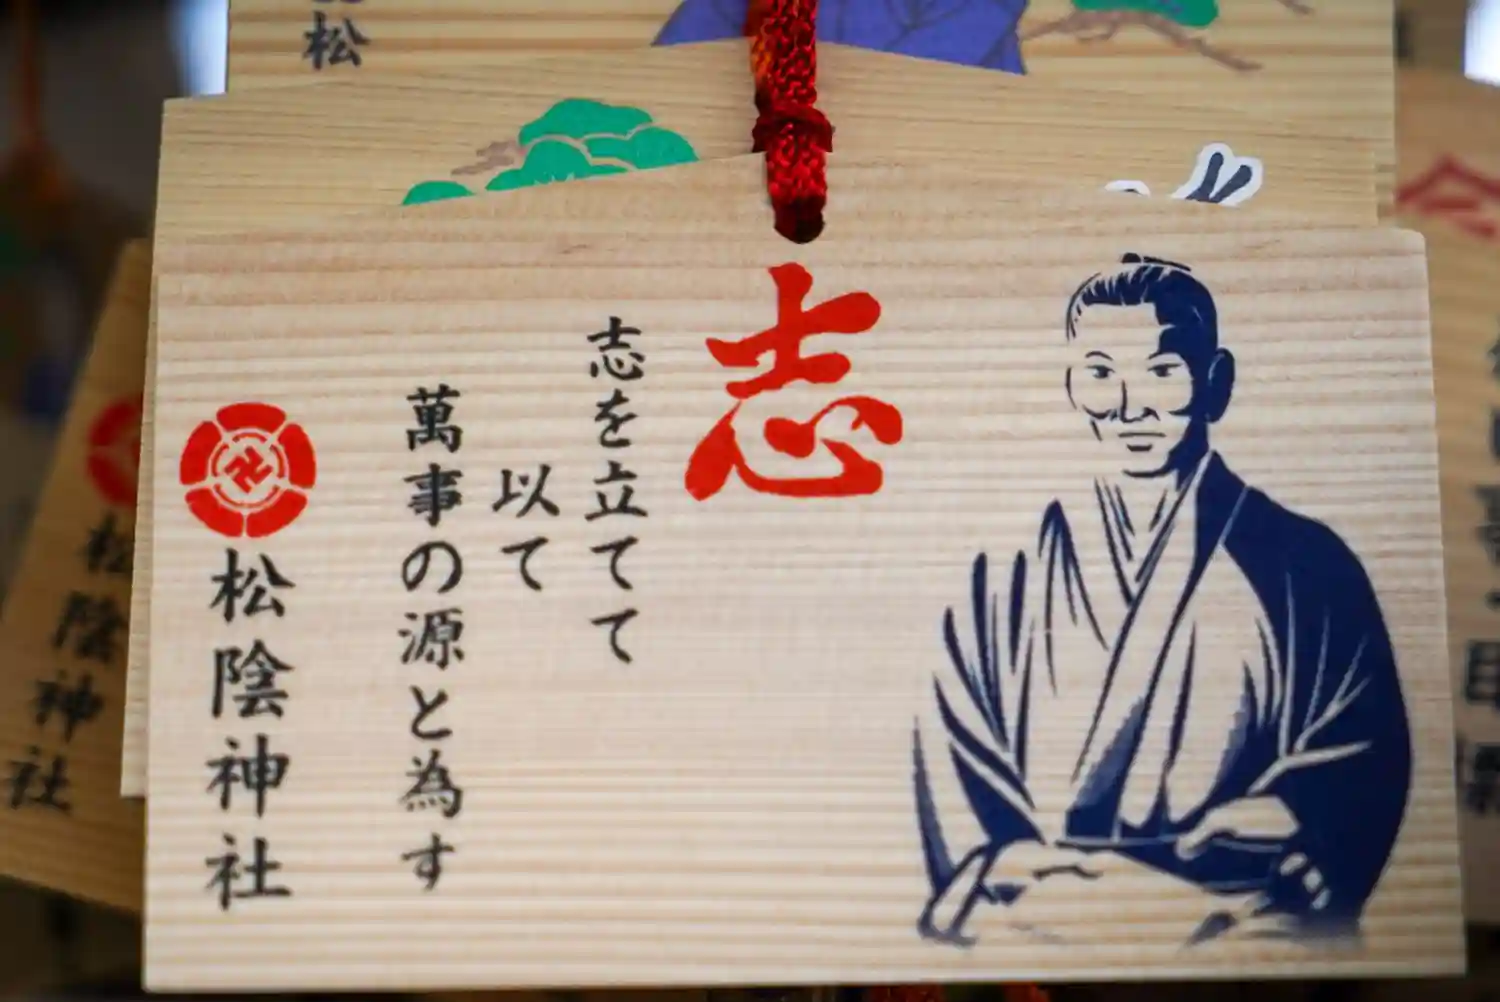 松
志
志を立てて
以て
萬事の源と為す
松陰神社
松陰神社